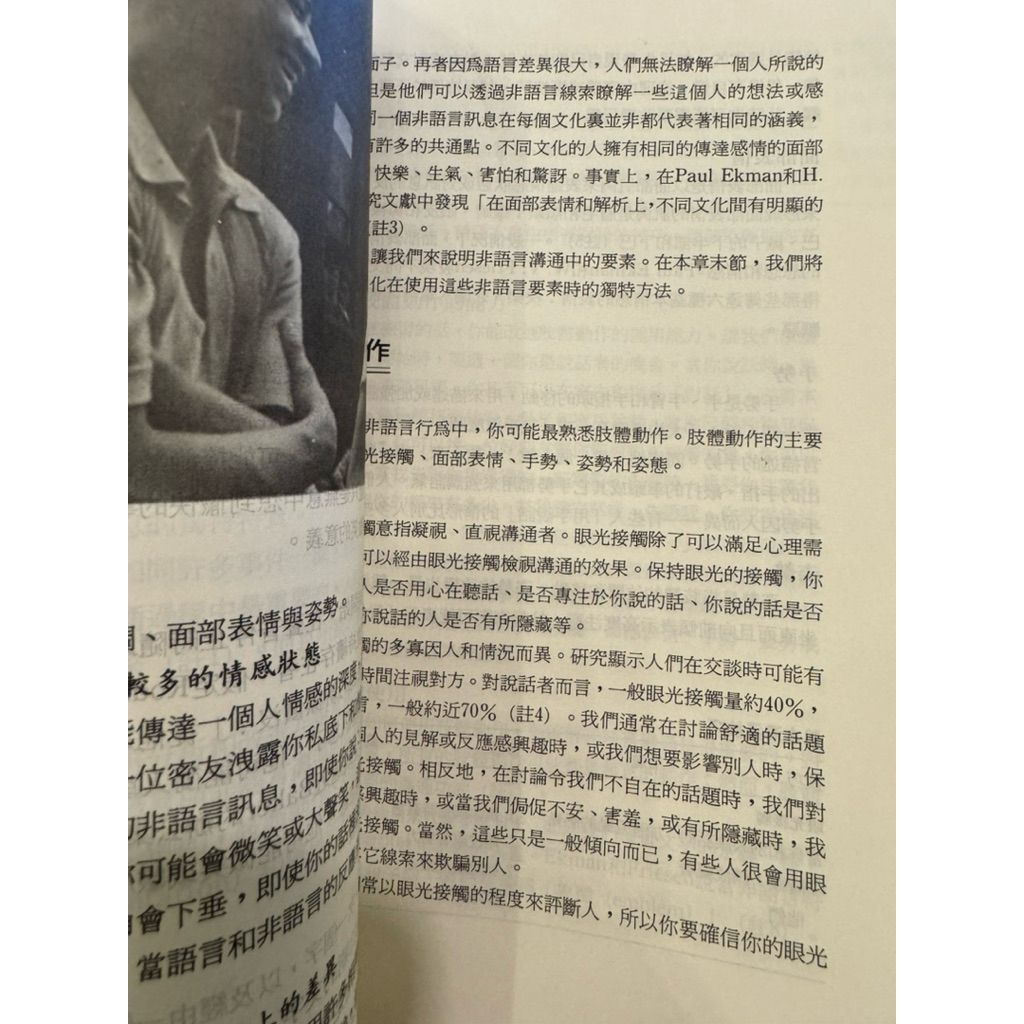 同、面部表情與姿勢。
較多的情感狀態
傳達一個人情感的深度
一位密友洩露你私底下和
非語言訊息，即使你
你可能會微笑或大聲笑，
會下垂，即使你的話
當語言和非語言的反應
上的差異
面子。再者因為語言差異很大，人們無法瞭解一個人所說的
但是他們可以透過非語言線索瞭解一些這個人的想法或感
同一個非語言訊息在每個文化裏並非都代表著相同的涵義，
有許多的共通點。不同文化的人擁有相同的傳達感情的面部
快樂、生氣、害怕和驚訝。事實上，在Paul Ekman和H.
究文獻中發現「在面部表情和解析上，不同文化間有明顯的
註3）。
讓我們來說明非語言溝通中的要素。在本章末節，我們將
化在使用這些非語言要素時的獨特方法。
作
非語言行為中，你可能最熟悉肢體動作。肢體動作的主要
光接觸、面部表情、手勢、姿勢和姿態。
觸意指凝視、直視溝通者。眼光接觸除了可以滿足心理需
可以經由眼光接觸檢視溝通的效果。保持眼光的接觸，你
人是否用心在聽話、是否專注於你說的話、你說的話是否
你說話的人是否有所隱藏等。
觸的多寡因人和情況而異。研究顯示人們在交談時可能有
時間注視對方。對說話者而言，一般眼光接觸量約40%，
言，一般約近70%（註4）。我們通常在討論舒適的話題
個人的見解或反應感興趣時，或我們想要影響別人時，保
光接觸。相反地，在討論令我們不自在的話題時，我們對
感興趣時，或當我們侷促不安、害羞，或有所隱藏時，我
光接觸。當然，這些只是一般傾向而已，有些人很會用眼
它線索來欺騙別人。
常以眼光接觸的程度來評斷人，所以你要確信你的眼光